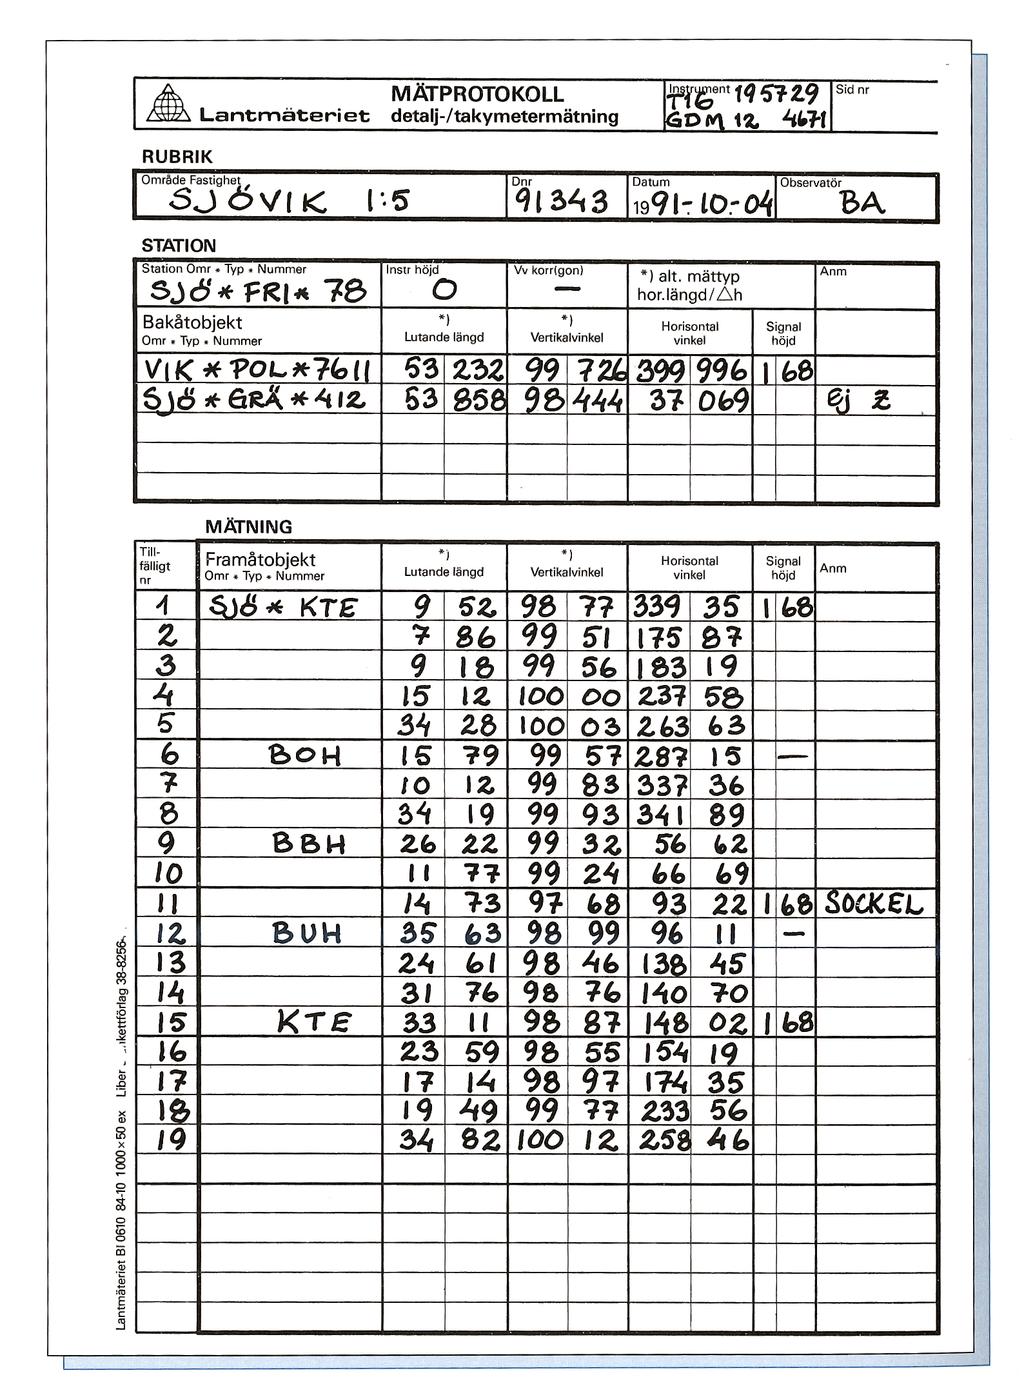 Lantmäteriet
MÄTPROTOKOLL
detalj-/takymetermätning
Instrument T16 195729
GDM 12 4671
Sid nr
RUBRIK
Område Fastighet Dnr Datum Observatör
SJÖVIK 1:5 91343 1991-10-04 BA
STATION
Station Omr * Typ * Nummer Instr höjd Vv korr(gon) *) alt. mättyp hor.längd/△h Anm
SJÖ * FRI * 78 0 —
Bakåtobjekt
Omr * Typ * Nummer *) Lutande längd *) Vertikalvinkel Horisontal vinkel Signal höjd
VIK * POL * 7611 53 232 99 726 399 996 1 68
SJÖ * GRÄ * 412 53 858 98 444 37 069 Ej Z
MÄTNING
Till-fälligt nr Framåtobjekt Omr * Typ * Nummer *) Lutande längd *) Vertikalvinkel Horisontal vinkel Signal höjd Anm
1 SJÖ * KTE 9 52 98 77 339 35 1 68
2 7 86 99 51 175 87
3 9 18 99 56 183 19
4 15 12 100 00 237 58
5 34 28 100 03 263 63
6 BOH 15 79 99 57 287 15 —
7 10 12 99 83 337 36
8 34 19 99 93 341 89
9 BBH 26 22 99 32 56 62
10 11 77 99 24 66 69
11 14 73 97 68 93 22 1 68 SOCKEL
12 BUH 35 63 98 99 96 11 —
13 24 61 98 46 138 45
14 31 76 98 76 140 70
15 KTE 33 11 98 87 148 02 1 68
16 23 59 98 55 154 19
17 17 14 98 97 174 35
18 19 49 99 77 233 56
19 34 82 100 12 258 46
Lantmäteriet Bl 0610 84-10 1000×50 ex Liber kettförlag 38-8256